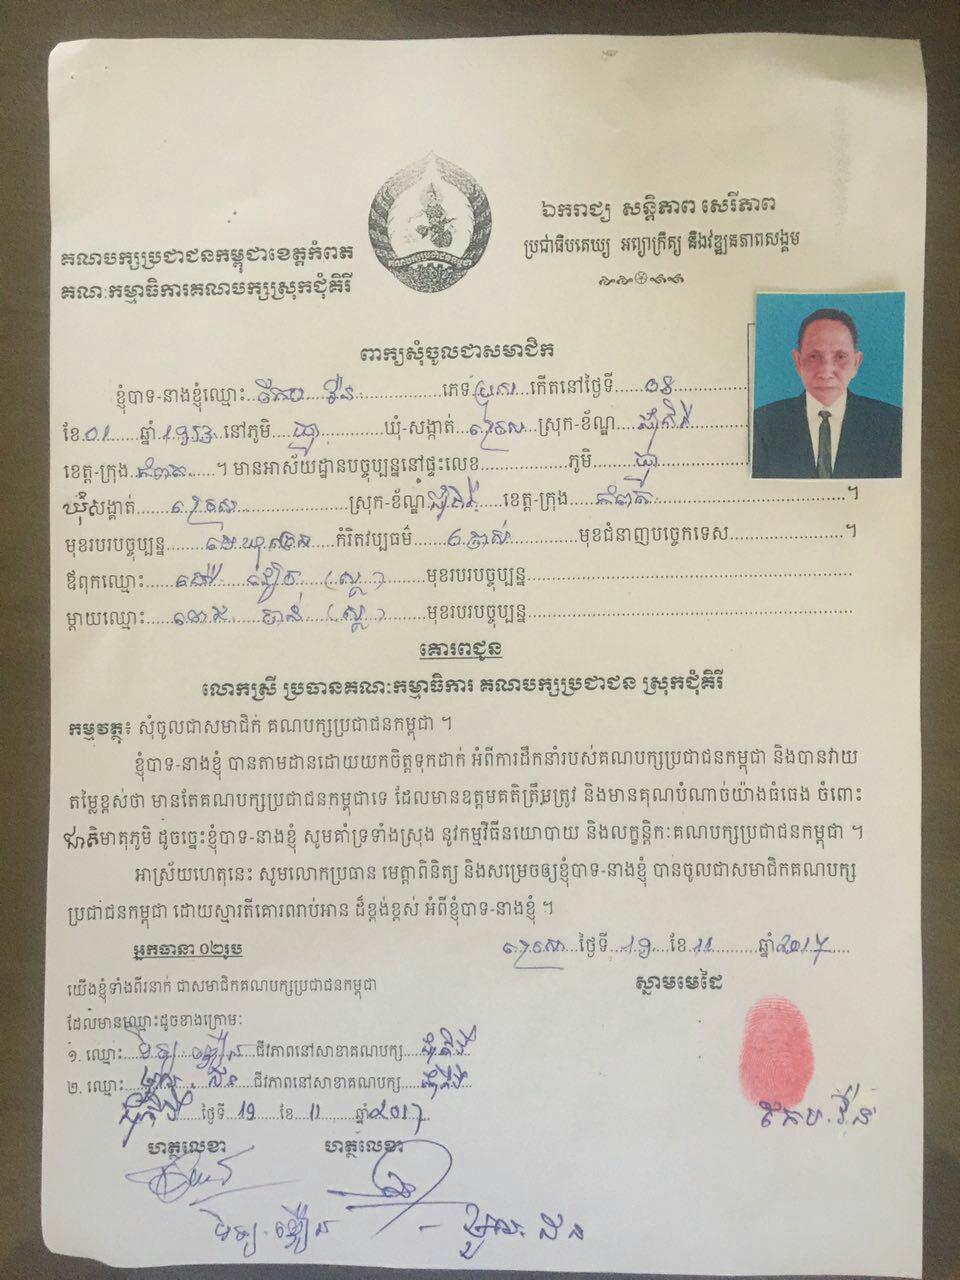 ឯករាជ្យ សន្តិភាព សេរីភាព
ប្រជាធិបតេយ្យ អព្យាក្រឹត្យ និងវឌ្ឍនភាពសង្គម
គណបក្សប្រជាជនកម្ពុជា
គណបក្សប្រជាជនកម្ពុជាខេត្តកំពត
គណៈកម្មាធិការគណបក្សស្រុកជុំគិរី
ពាក្យសុំចូលជាសមាជិក
ខ្ញុំបាទ-នាងខ្ញុំឈ្មោះ កែប វ៉ន ភេទ ប្រុស កើតនៅថ្ងៃទី 08
ខែ 01 ឆ្នាំ 1953 នៅភូមិ ឃុំ-សង្កាត់ ស្រុក-ខ័ណ្ឌ ជុំគិរី
ខេត្ត-ក្រុង កំពត ។ មានអាស័យដ្ឋានបច្ចុប្បន្ននៅផ្ទះលេខ ភូមិ
ឃុំសង្កាត់ ស្រុក-ខ័ណ្ឌ ជុំគិរី ខេត្ត-ក្រុង កំពត ។
មុខរបរបច្ចុប្បន្ន កំរិតវប្បធម៌ មុខជំនាញបច្ចេកទេស ។
ឪពុកឈ្មោះ (ស្លា) មុខរបរបច្ចុប្បន្ន
ម្តាយឈ្មោះ ចាន់ (ស្លា) មុខរបរបច្ចុប្បន្ន
គោរពជូន
លោកស្រី ប្រធានគណៈកម្មាធិការ គណបក្សប្រជាជន ស្រុកជុំគិរី
កម្មវត្ថុ៖ សុំចូលជាសមាជិក គណបក្សប្រជាជនកម្ពុជា ។
ខ្ញុំបាទ-នាងខ្ញុំ បានតាមដានដោយយកចិត្តទុកដាក់ អំពីការដឹកនាំរបស់គណបក្សប្រជាជនកម្ពុជា និងបានវាយ
តម្លៃខ្ពស់ថា មានតែគណបក្សប្រជាជនកម្ពុជាទេ ដែលមានឧត្តមគតិត្រឹមត្រូវ និងមានគុណបំណាច់យ៉ាងធំធេង ចំពោះ
ជាតិមាតុភូមិ ដូច្នេះខ្ញុំបាទ-នាងខ្ញុំ សូមគាំទ្រទាំងស្រុង នូវកម្មវិធីនយោបាយ និងលក្ខន្តិកៈគណបក្សប្រជាជនកម្ពុជា ។
អាស្រ័យហេតុនេះ សូមលោកប្រធាន មេត្តាពិនិត្យ និងសម្រេចឲ្យខ្ញុំបាទ-នាងខ្ញុំ បានចូលជាសមាជិកគណបក្ស
ប្រជាជនកម្ពុជា ដោយស្មារតីគោរពរាប់អាន ដ៏ខ្ពង់ខ្ពស់ អំពីខ្ញុំបាទ-នាងខ្ញុំ ។
ថ្ងៃទី 19 ខែ 11 ឆ្នាំ 2017
អ្នកធានា ០២រូប
ស្នាមមេដៃ
យើងខ្ញុំទាំងពីរនាក់ ជាសមាជិកគណបក្សប្រជាជនកម្ពុជា
ដែលមានឈ្មោះដូចខាងក្រោម:
១. ឈ្មោះ ជីវភាពនៅសាខាគណបក្ស ជុំគិរី
២. ឈ្មោះ ជីវភាពនៅសាខាគណបក្ស ជុំគិរី
ជុំគិរី ថ្ងៃទី 19 ខែ 11 ឆ្នាំ 2017
កែប វ៉ន
ហត្ថលេខា ហត្ថលេខា